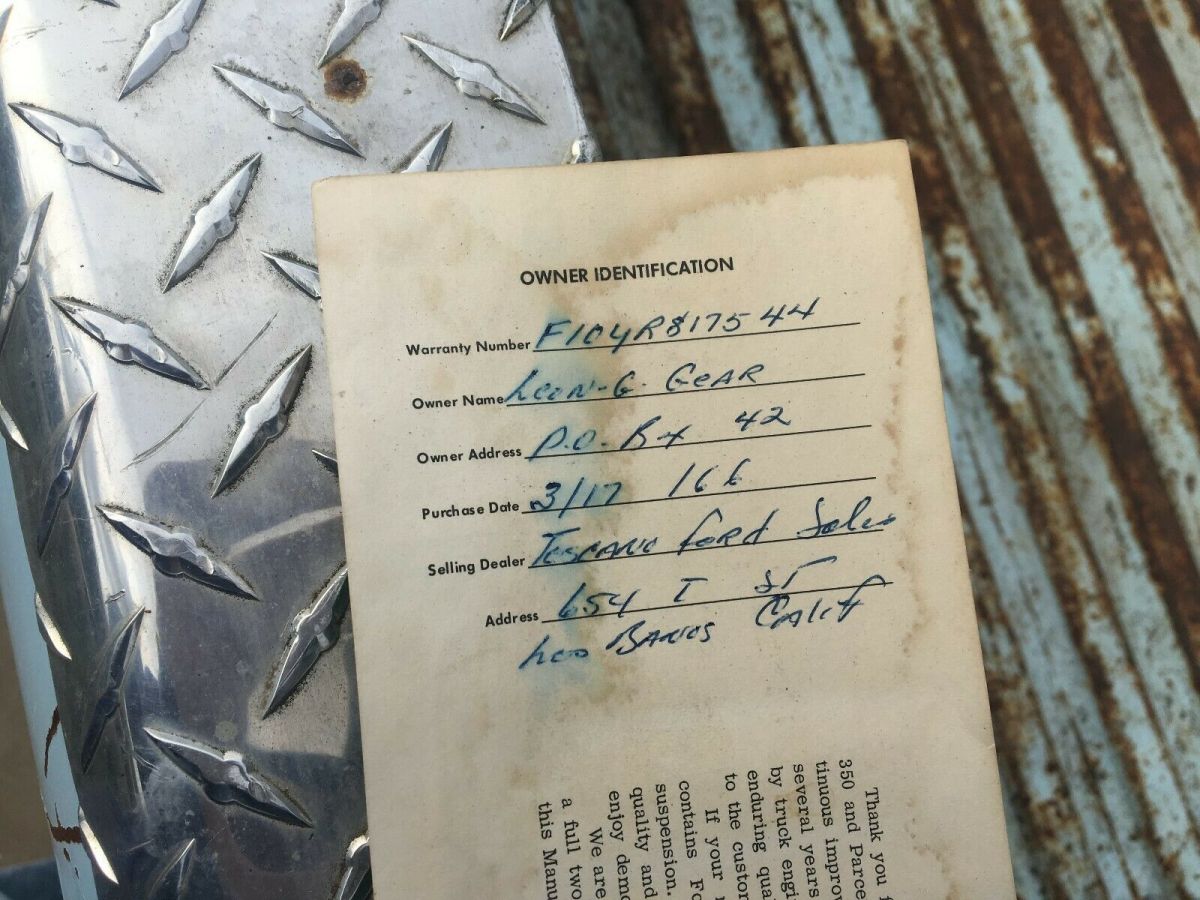 OWNER IDENTIFICATION
Warranty Number F10YR817544
Owner Name Leon G. Gear
Owner Address P.O. Bx 42
Purchase Date 3/17 /66
Selling Dealer Toscano Ford Sales
Address 654 I St
Los Banos Calif
Thank you f
350 and Parce
tinuous improv
several years
by truck engi
enduring qual
to the custom
If your
contains Fo
suspension.
quality and
enjoy demo
We are
a full two
this Manu